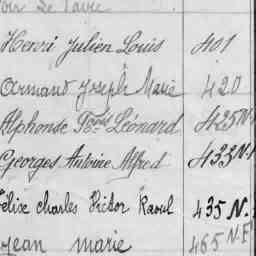 de Paul
Henri Julien Louis 401
Armand Joseph Marie 420
Alphonse Fçois Léonard 425 N.
Georges Antoine Alfred 433 N.
Félix Charles Victor Raoul 435 N.
Jean Marie 465 N.E